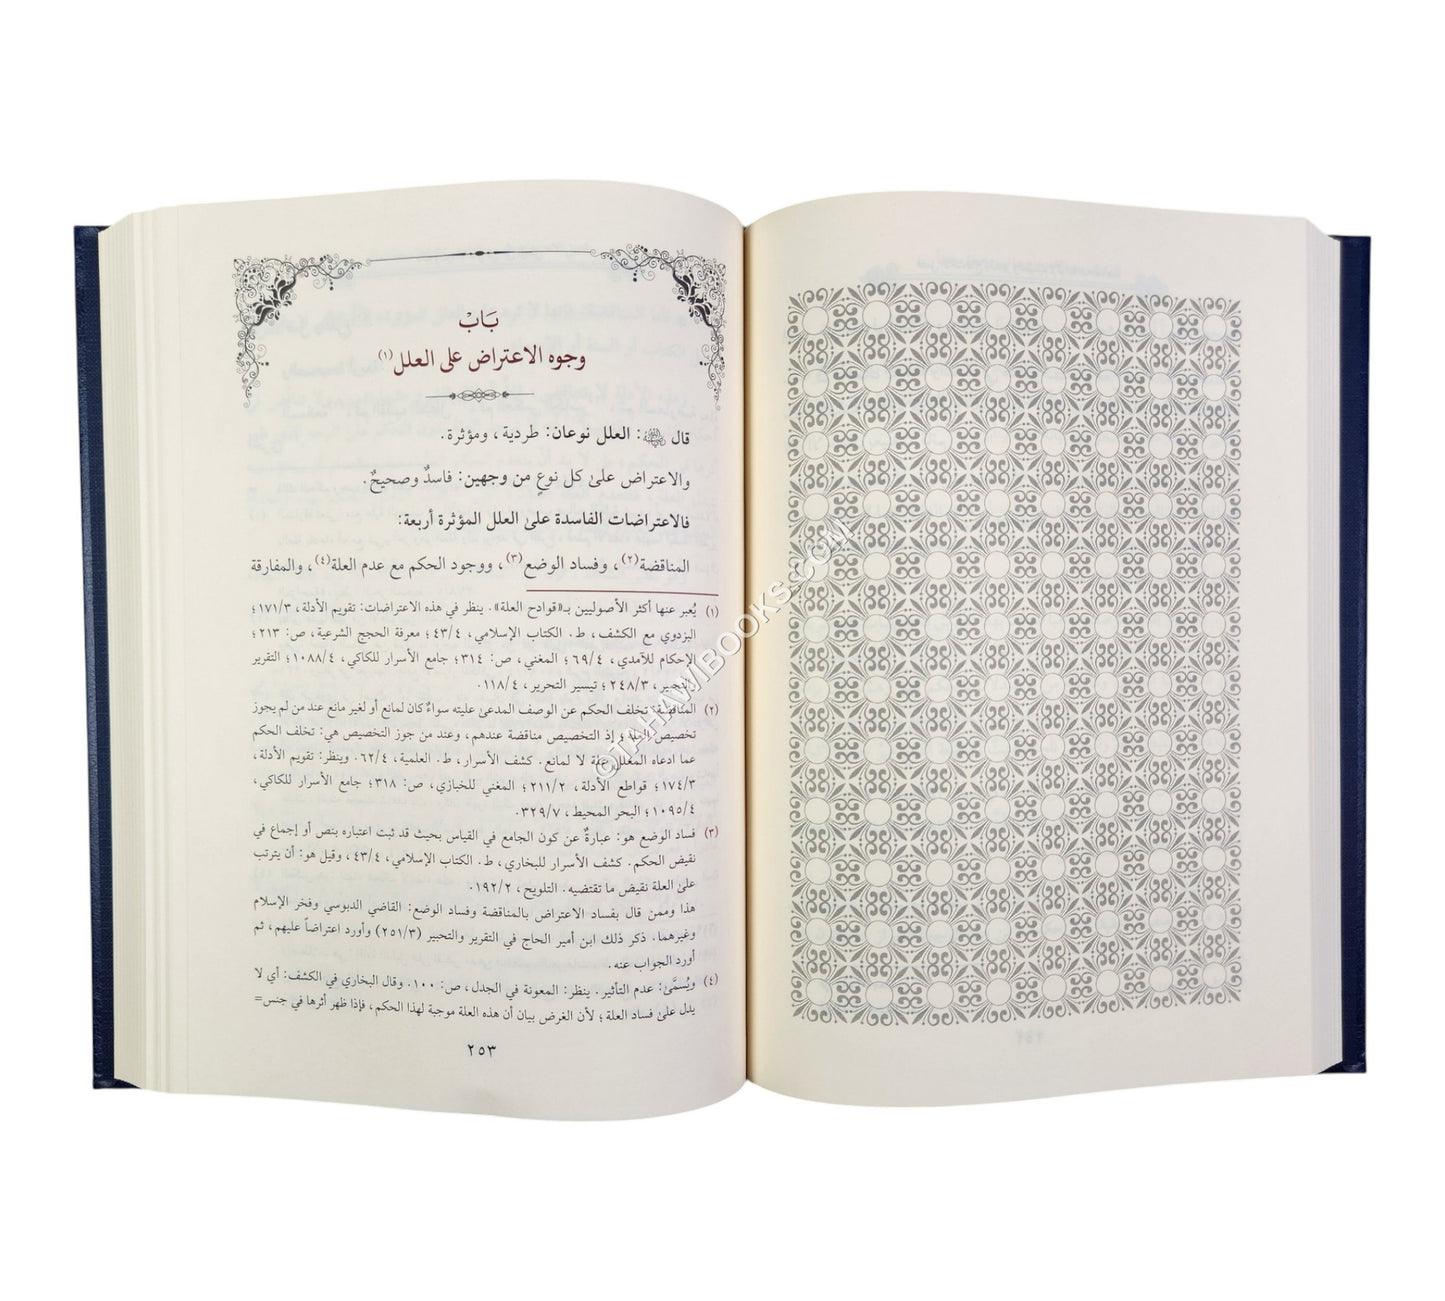 بَابْ
وجوه الاعتراض على العلل(١)
قال: العلل نوعان: طردية، ومؤثرة.
والاعتراض علىٰ كل نوعٍ من وجهين: فاسدٌ وصحيحٌ.
فالاعتراضات الفاسدة علىٰ العلل المؤثرة أربعة:
المناقضة(٢)، وفساد الوضع(٣)، ووجود الحكم مع عدم العلة(٤)، والمفارقة
(١) يُعبر عنها أكثر الأصوليين بـ«قوادح العلة». ينظر في هذه الاعتراضات: تقويم الأدلة، ١٧١/٣؛
البزدوي مع الكشف، ط. الكتاب الإسلامي، ٤٣/٤؛ معرفة الحجج الشرعية، ص: ٢١٣؛
الإحكام للآمدي، ٦٩/٤؛ المغني، ص: ٣١٤؛ جامع الأسرار للكاكي، ١٠٨٨/٤؛ التقرير
والتحبير، ٢٤٨/٣؛ تيسير التحرير، ١١٨/٤.
(٢) المناقضة: تخلف الحكم عن الوصف المدعىٰ عليته سواءٌ كان لمانع أو لغير مانع عند من لم يجوز
تخصيص العلة؛ إذ التخصيص مناقضة عندهم، وعند من جوز التخصيص هي: تخلف الحكم
عما ادعاه المعلل علة لا لمانع. كشف الأسرار، ط. العلمية، ٦٢/٤. وينظر: تقويم الأدلة،
١٧٤/٣؛ قواطع الأدلة، ٢١١/٢؛ المغني للخبازي، ص: ٣١٨؛ جامع الأسرار للكاكي،
١٠٩٥/٤؛ البحر المحيط، ٣٢٩/٧.
(٣) فساد الوضع هو: عبارةٌ عن كون الجامع في القياس بحيث قد ثبت اعتباره بنص أو إجماع في
نقيض الحكم. كشف الأسرار للبخاري، ط. الكتاب الإسلامي، ٤٣/٤، وقيل هو: أن يترتب
علىٰ العلة نقيض ما تقتضيه. التلويح، ١٩٢/٢.
هذا وممن قال بفساد الاعتراض بالمناقضة وفساد الوضع: القاضي الدبوسي وفخر الإسلام
وغيرهما، ذكر ذلك ابن أمير الحاج في التقرير والتحبير (٢٥١/٣) وأورد اعتراضاً عليهم، ثم
أورد الجواب عنه.
(٤) ويُسمَّىٰ: عدم التأثير. ينظر: المعونة في الجدل، ص: ١٠٠. وقال البخاري في الكشف: أي لا
يدل علىٰ فساد العلة؛ لأن الغرض بيان أن هذه العلة موجبة لهذا الحكم، فإذا ظهر أثرها في جنس=
٢٥٣
©TAHAWIBOOKS.COM